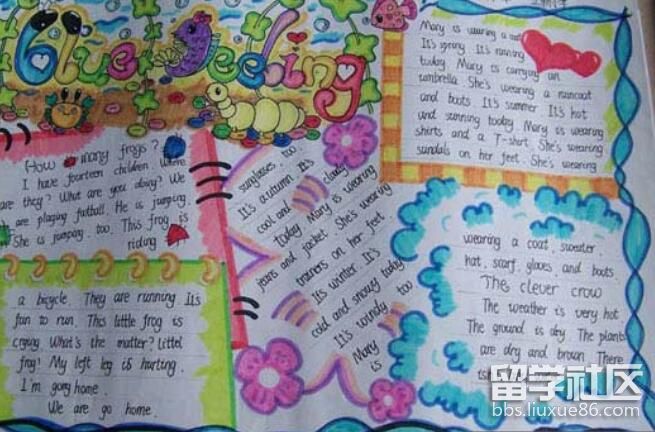 Blue feeling
Mary is wearing a
It's spring. It's raining
today Mary is carrying an
umbrella. She's wearing a raincoat
and boots. It's summer. It's hot
and sunning tooday. Mary is wearing
shirts and a T-shirt. She's wearing
sandals on her feet. She's wearing
sunglasses too.
It's autumn. It's
cool and cloudy
today Mary is wearing
jeans and jacket. She's wearing
trainers on her feet
Its winter. It's
cold and snowy today
It's windy too
Mary
is
wearing a coat, sweater
hat, scarf, gloves, and boots
How many frogs?
I have fourteen children. Where
are they? What are you doing? We
are playing football. He is jumping.
She is jumping. too. This frog is
riding
a bicycle. They are running. It's
fun to run. This little frog is
crying What's the matter? Littel
frog! My left leg is hurting.
I'm gong home.
We are go home.
The clever crow
The weather is very hot
The ground is dry. The plants
are dry and brown. There
留学社区
bbs.liuxue86.com